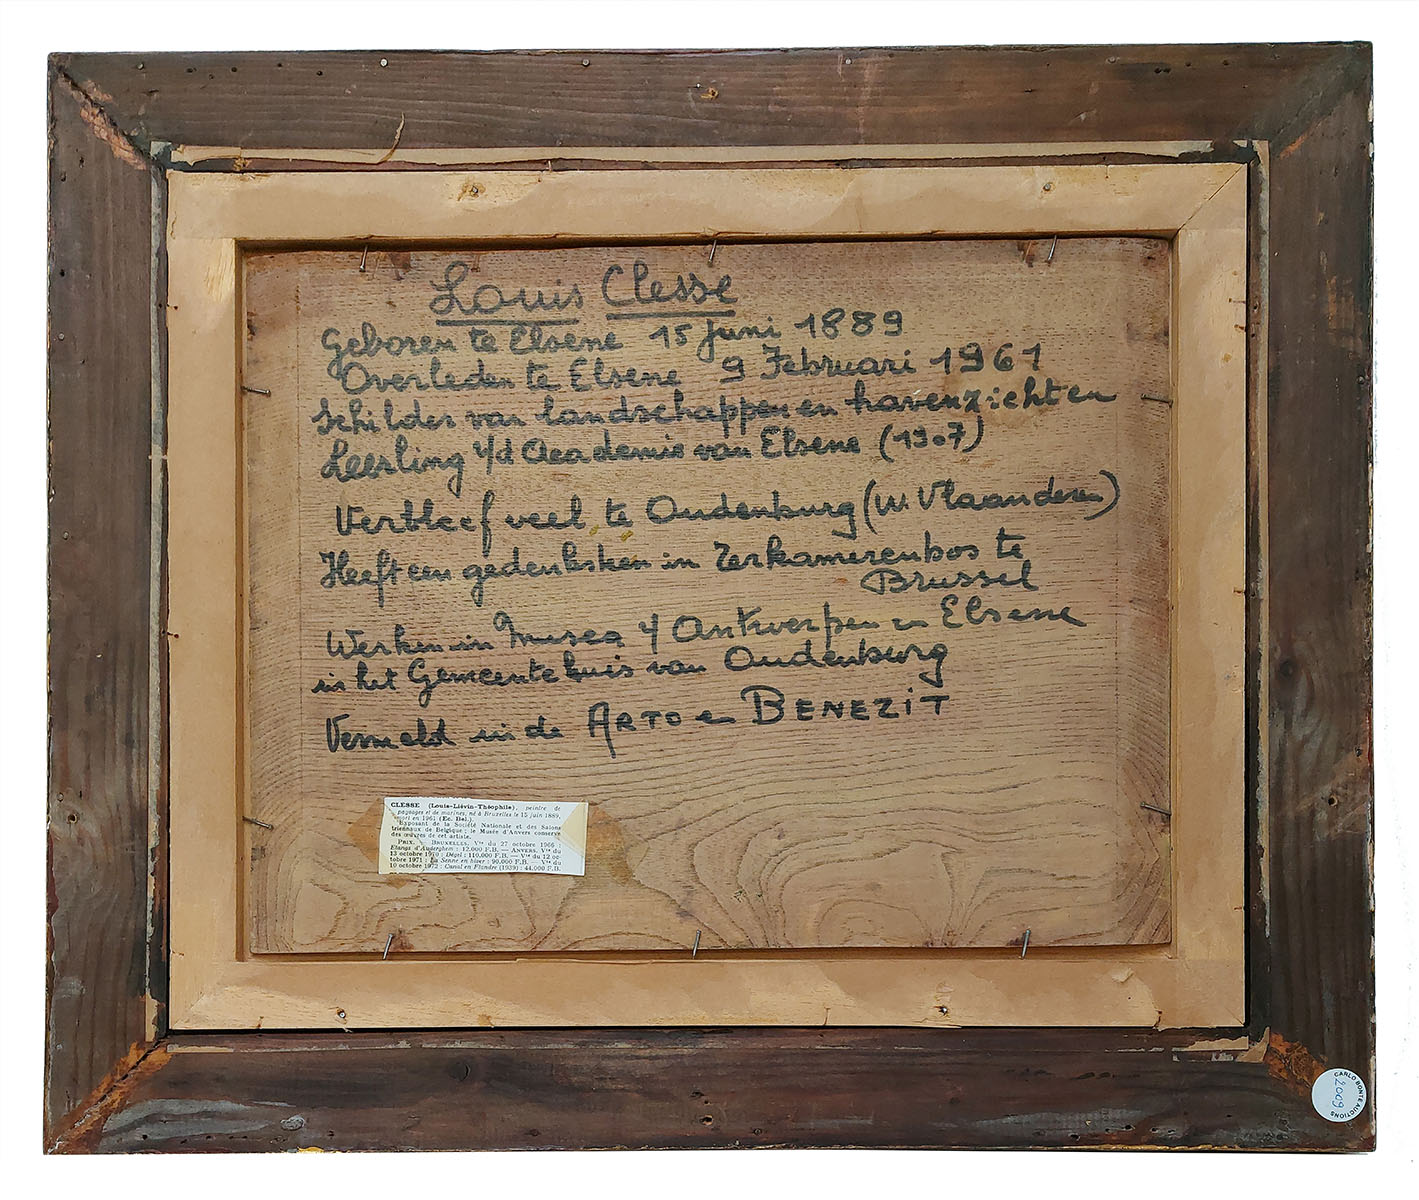 Louis Clesse
Geboren te Elsene 15 Juni 1889
Overleden te Elsene 9 Februari 1961
Schilder van landschappen en havenzichten
Leerling v/d Academie van Elsene (1907)
Verbleef veel te Oudenburg (W. Vlaanderen)
Heeft een gedenksteen in Terkamerenbos te
Brussel
Werken in Musea v Antwerpen en Elsene
in het Gemeentehuis van Oudenburg
Vermeld in de ARTO en BENEZIT
CLESSE (Louis-Liévin-Théophile), peintre de
paysages et de marines, né à Bruxelles le 15 juin 1889,
mort en 1961 (Ec. Bel.).
Exposant de la Société Nationale et des Salons
triennaux de Belgique; le Musée d'Anvers conserve
des œuvres de cet artiste.
PRIX. — BRUXELLES, Vte du 27 octobre 1966 :
Etangs d'Auderghem : 12.000 F.B. — ANVERS, Vte du
13 octobre 1970 : Dégel : 110.000 F.B. — Vte du 12 oc-
tobre 1971 : La Senne en hiver : 90.000 F.B. — Vte du
10 octobre 1972 : Canal en Flandre (1939) : 44.000 F.B.
CARLO BONTE AUCTIONS
2009